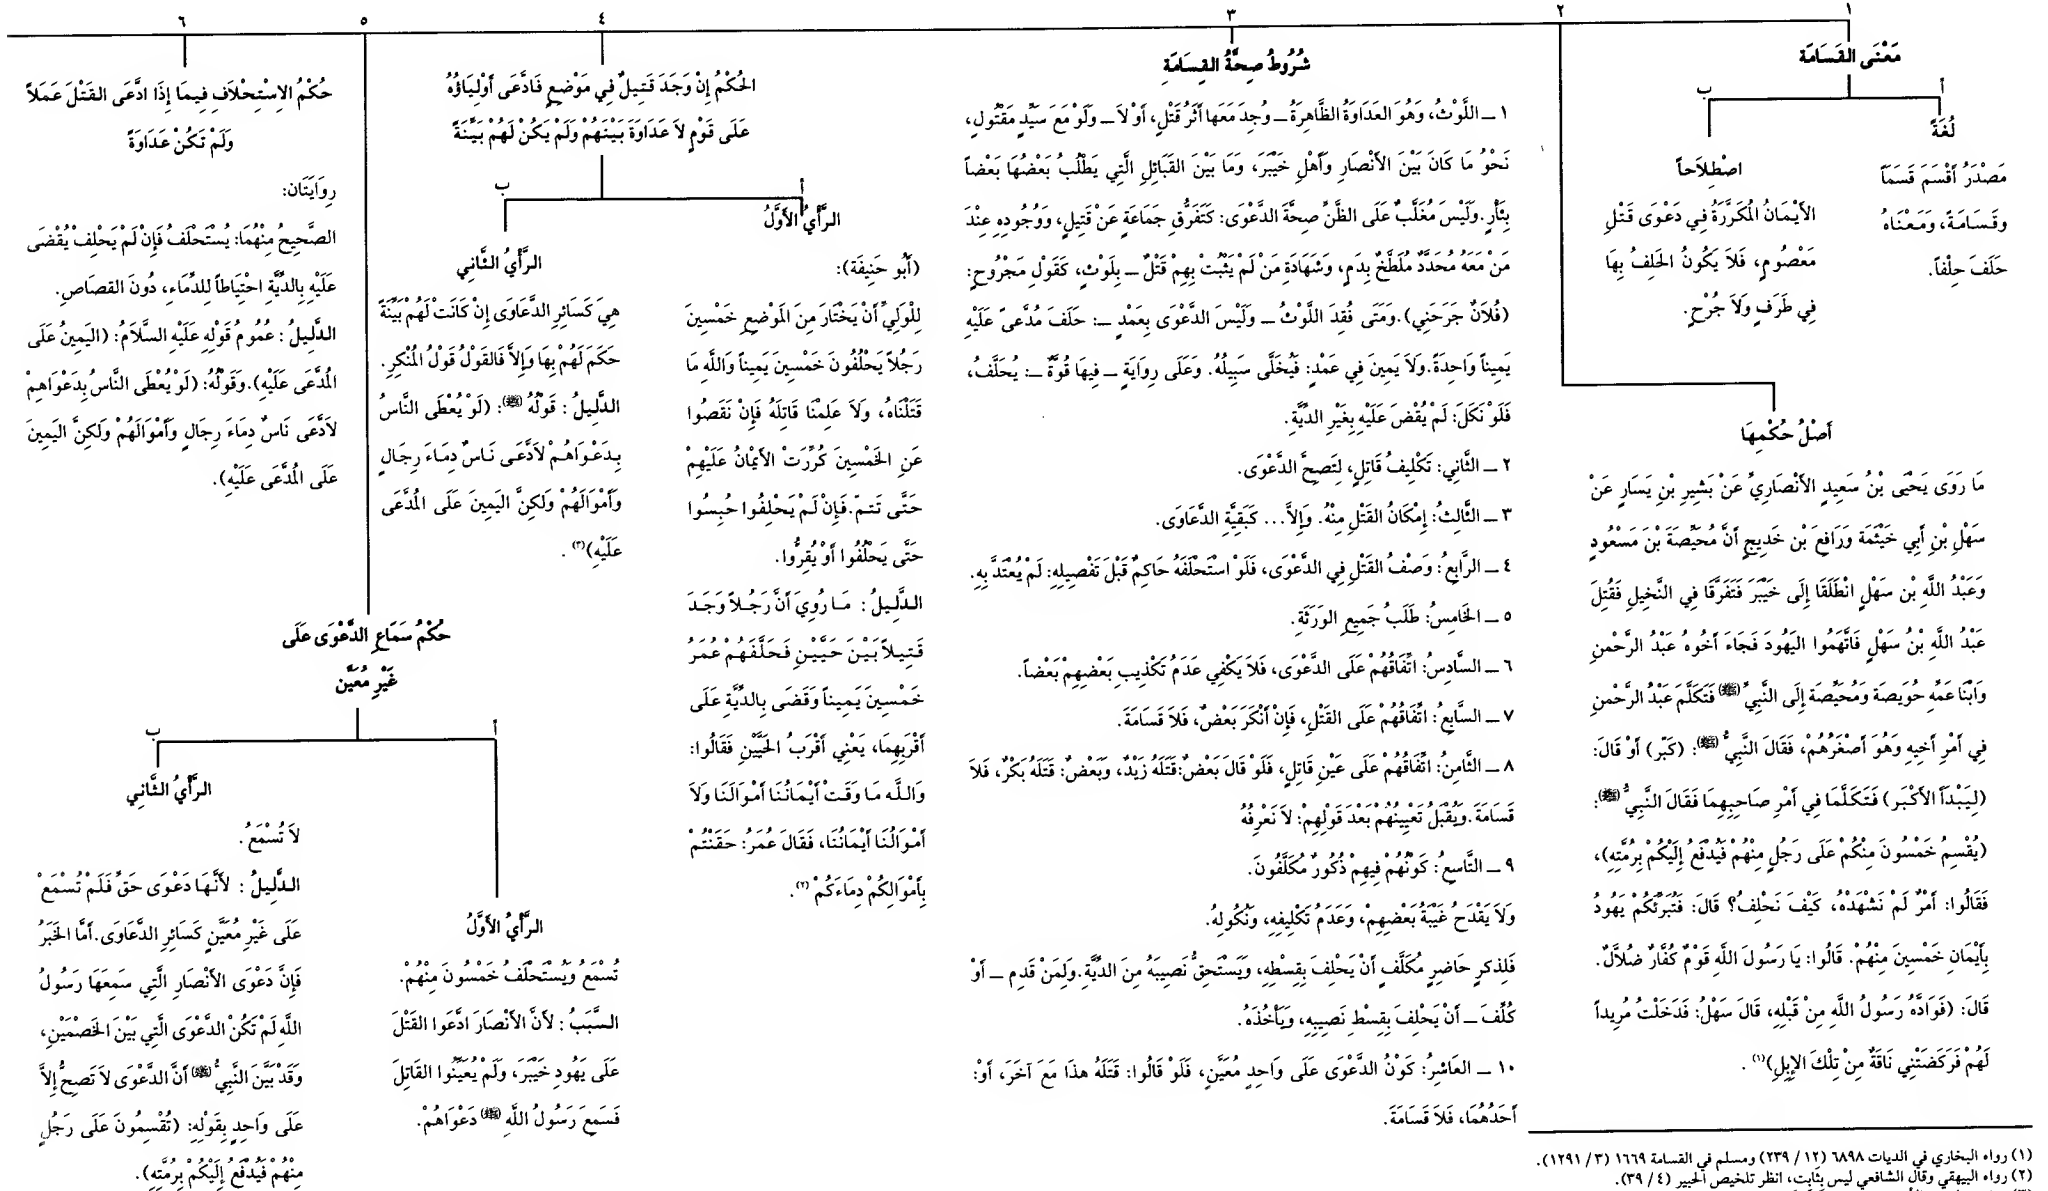 ١
مَعْنَى القَسَامَة
أ
لُغَةً
مَصْدَرُ أَقْسَمَ قَسَماً
وقَسَامَةً، وَمَعْنَاهُ
حَلَفَ حِلْفاً.
ب
اصْطِلاَحاً
الأَيْمَانُ المُكَرَّرَةُ فِي دَعْوَى قَتْلِ
مَعْصُومٍ، فَلاَ يَكُونُ الحَلِفُ بِهَا
فِي طَرَفٍ وَلاَ جُرْحٍ.
٢
أَصْلُ حُكْمِهَا
مَا رَوَى يَحْيَى بْنُ سَعِيدٍ الأَنْصَارِيِّ عَنْ بَشِيرِ بْنِ يَسَارٍ عَنْ
سَهْلِ بْنِ أَبِي خَيْثَمَة وَرَافِعَ بْنَ خَدِيجٍ أَنَّ مُحَيِّصَةَ بْنَ مَسْعُودٍ
وَعَبْدُ اللَّهِ بْن سَهْلٍ انْطَلَقَا إِلَى خَيْبَرَ فَتَفَرَّقَا فِي النَّخِيلِ فَقُتِلَ
عَبْدُ اللَّهِ بْنُ سَهْلٍ فَاتَّهَمُوا اليَهُودَ فَجَاءَ أَخُوهُ عَبْدُ الرَّحْمنِ
وَابْنَا عَمِّهِ حُوَيصَة وَمُحَيِّصَة إِلَى النَّبِيِّ (ﷺ) فَتَكَلَّمَ عَبْدُ الرَّحْمنِ
فِي أَمْرِ أَخِيهِ وَهُوَ أَصْغَرُهُمْ، فَقَالَ النَّبِيُّ (ﷺ): (كَبِّر) أَوْ قَالَ:
(لِيَبْدَأ الأَكْبَر) فَتَكَلَّمَا فِي أَمْرِ صَاحِبِهِمَا فَقَالَ النَّبِيُّ (ﷺ):
(يُقْسِمُ خَمْسُونَ مِنْكُمْ عَلَى رَجُلٍ مِنْهُمْ فَيُدْفَعُ إِلَيْكُمْ بِرُمَّتِهِ)،
فَقَالُوا: أَمْرٌ لَمْ نَشْهَدْهُ، كَيْفَ نَحْلِفُ؟ قَالَ: فَتُبَرِّئُكُمْ يَهُودُ
بِأَيْمَانِ خَمْسِينَ مِنْهُمْ. قَالُوا: يَا رَسُولَ اللَّهِ قَوْمٌ كُفَّارٌ ضُلاَّلٌ.
قَالَ: (فَوَادَّهُ رَسُولُ اللَّهِ مِنْ قَبْلِهِ، قَالَ سَهْلُ: فَدَخَلْتُ مُرِيداً
لَهُمْ فَرَكَضَتْنِي نَاقَةٌ مِنْ تِلْكَ الإِبِلِ)(١) .
٣
شُرُوطُ صِحَّةُ القِسَامَةِ
١ ــ اللَّوْثُ، وَهُوَ العَدَاوَةُ الظَّاهِرَةُ ــ وُجِدَ مَعَهَا أَثَرُ قَتْلٍ، أَوْ لاَ ــ وَلَوْ مَعَ سَيِّدٍ مَقْتُولٍ،
نَحْوُ مَا كَانَ بَيْنَ الأَنْصَارِ وَأَهْلِ خَيْبَرَ، وَمَا بَيْنَ القَبَائِلِ الَّتِي يَطْلُبُ بَعْضُهَا بَعْضاً
بِثَأْرٍ. وَلَيْسَ مُغَلِّبٌ عَلَى الظَّنِّ صِحَّةَ الدَّعْوَى: كَتَفَرُّقِ جَمَاعَةٍ عَنْ قَتِيلٍ، وَوُجُودِهِ عِنْدَ
مَنْ مَعَهُ مُحَدَّدٌ مُلَطَّخٌ بِدَمٍ، وَشَهَادَةِ مَنْ لَمْ يَثْبُتْ بِهِمْ قَتْلٌ ــ بِلَوْثٍ، كَقَوْلِ مَجْرُوحٍ:
(فُلاَنٌ جَرَحَنِي). وَمَتَى فُقِدَ اللَّوْثُ ــ وَلَيْسَ الدَّعْوَى بِعَمْدٍ ــ: حَلَفَ مُدَّعىً عَلَيْهِ
يَمِيناً وَاحِدَةً. وَلاَ يَمِينَ فِي عَمْدٍ: فَيُخَلَّى سَبِيلُهُ. وَعَلَى رِوَايَةٍ ــ فِيهَا قُوَّةٌ ــ: يُحَلَّفُ،
فَلَوْ نَكَلَ: لَمْ يُقْضَ عَلَيْهِ بِغَيْرِ الدِّيَّةِ.
٢ ــ الثَّانِي: تَكْلِيفُ قَاتِلٍ، لِتَصِحَّ الدَّعْوَى.
٣ ــ الثَّالِثُ: إِمْكَانُ القَتْلِ مِنْهُ. وَإِلاَّ... كَبَقِيَّةِ الدَّعَاوَى.
٤ ــ الرَّابِعُ: وَصْفُ القَتْلِ فِي الدَّعْوَى، فَلَوْ اسْتَحْلَفَهُ حَاكِمٌ قَبْلَ تَفْصِيلِهِ: لَمْ يُعْتَدَّ بِهِ.
٥ ــ الخَامِسُ: طَلَبُ جَمِيعِ الوَرَثَةِ.
٦ ــ السَّادِسُ: اتِّفَاقُهُمْ عَلَى الدَّعْوَى، فَلاَ يَكْفِي عَدَمُ تَكْذِيبِ بَعْضِهِمْ بَعْضاً.
٧ ــ السَّابِعُ: اتِّفَاقُهُمْ عَلَى القَتْلِ، فَإِنْ أَنْكَرَ بَعْضٌ، فَلاَ قَسَامَةَ.
٨ ــ الثَّامِنُ: اتِّفَاقُهُمْ عَلَى عَيْنِ قَاتِلٍ، فَلَوْ قَالَ بَعْضٌ: قَتَلَهُ زَيْدٌ، وَبَعْضٌ: قَتَلَهُ بَكْرٌ، فَلاَ
قَسَامَةَ. وَيُقْبَلُ تَعْيِينُهُمْ بَعْدَ قَوْلِهِمْ: لاَ نَعْرِفُهُ
٩ ــ التَّاسِعُ: كَوْنُهُمْ فِيهِمْ ذُكُورٌ مُكَلَّفُونَ.
وَلاَ يَقْدَحُ غَيْبَةُ بَعْضِهِمْ، وَعَدَمُ تَكْلِيفِهِ، وَنُكُولِهُ.
فَلِذكرٍ حَاضِرٍ مُكَلَّفٍ أَنْ يَحْلِفَ بِقِسْطِهِ، وَيَسْتَحِقُّ نَصِيبَهُ مِنَ الدِّيَّةِ. وَلِمَنْ قَدِمَ ــ أَوْ
كُلِّفَ ــ أَنْ يَحْلِفَ بِقِسْطِ نَصِيبِهِ، وَيَأْخُذَهُ.
١٠ ــ العَاشِرُ: كَوْنُ الدَّعْوَى عَلَى وَاحِدٍ مُعَيَّنٍ، فَلَوْ قَالُوا: قَتَلَهُ هذَا مَعَ آخَرَ، أَوْ:
أَحَدُهُمَا، فَلاَ قَسَامَةَ.
٤
الحُكْمُ إِنْ وَجَدَ قَتِيلٌ فِي مَوْضِعٍ فَادَّعَى أَوْلِيَاؤُهُ
عَلَى قَوْمٍ لاَ عَدَاوَةَ بَيْنَهُمْ وَلَمْ يَكُنْ لَهُمْ بَيِّنَةً
أ
الرَّأْيُ الأَوَّلُ
(أَبُو حَنِيفَة):
لِلْوَلِيِّ أَنْ يَخْتَارَ مِنَ المَوْضِعِ خَمْسِينَ
رَجُلاً يَحْلُفُونَ خَمْسِينَ يَمِيناً وَاللَّهِ مَا
قَتَلْنَاهُ، وَلاَ عَلِمْنَا قَاتِلَهُ فَإِنْ نَقَصُوا
عَنِ الخَمْسِينَ كُرِّرَتْ الأَيْمَانُ عَلَيْهِمْ
حَتَّى تَتمّ. فَإِنْ لَمْ يَحْلِفُوا حُبِسُوا
حَتَّى يَحْلُفُوا أَوْ يُقِرُّوا.
الدَّلِيلُ : مَا رُوِيَ أَنَّ رَجُلاً وَجَدَ
قَتِيلاً بَيْنَ حَيَّيْنِ فَحَلَّفَهُمْ عُمَرُ
خَمْسِينَ يَمِيناً وَقَضَى بِالدِّيَّةِ عَلَى
أَقْرَبِهِمَا، يَعْنِي أَقْرَبُ الحَيَّيْنِ فَقَالُوا:
وَاللَّه مَا وَقَتْ أَيْمَانُنَا أَمْوَالَنَا وَلاَ
أَمْوَالُنَا أَيْمَانُنَا، فَقَالَ عُمَرُ: حَقَنْتُمْ
بِأَمْوَالِكُمْ دِمَاءَكُمْ (٢).
ب
الرَّأْيُ الثَّانِي
هِيَ كَسَائِرِ الدَّعَاوَى إِنْ كَانَتْ لَهُمْ بَيِّنَةً
حَكَمَ لَهُمْ بِهَا وَإِلاَّ فَالقَوْلُ قَوْلُ المُنْكِرِ.
الدَّلِيلُ : قَوْلُهُ (ﷺ): (لَوْ يُعْطَى النَّاسُ
بِدَعْوَاهُمْ لاَدَّعَى نَاسٌ دِمَاءَ رِجَالٍ
وَأَمْوَالَهُمْ وَلَكِنَّ اليَمِينَ عَلَى المُدَّعَى
عَلَيْهِ)(٣) .
٥
حُكْمُ سَمَاعِ الدَّعْوَى عَلَى
غَيْرِ مُعَيَّنٍ
أ
الرَّأْيُ الأَوَّلُ
تُسْمَعُ وَيُسْتَحْلَفُ خَمْسُونَ مِنْهُمْ.
السَّبَبُ : لأَنَّ الأَنْصَارَ ادَّعَوا القَتْلَ
عَلَى يَهُودِ خَيْبَرَ، وَلَمْ يُعَيِّنُوا القَاتِلَ
فَسَمِعَ رَسُولُ اللَّهِ (ﷺ) دَعْوَاهُمْ.
ب
الرَّأْيُ الثَّانِي
لاَ تُسْمَعُ.
الدَّلِيلُ : لأَنَّهَا دَعْوَى حَقٍّ فَلَمْ تُسْمَعْ
عَلَى غَيْرِ مُعَيَّنٍ كَسَائِرِ الدَّعَاوَى. أَمَّا الخَبَرُ
فَإِنَّ دَعْوَى الأَنْصَارِ الَّتِي سَمِعَهَا رَسُولُ
اللَّهِ لَمْ تَكُنْ الدَّعْوَى الَّتِي بَيْنَ الخَصْمَيْنِ،
وَقَدْ بَيَّنَ النَّبِيُّ (ﷺ) أَنَّ الدَّعْوَى لاَ تَصِحُّ إِلاَّ
عَلَى وَاحِدٍ بِقَوْلِهِ: (تُقْسِمُونَ عَلَى رَجُلٍ
مِنْهُمْ فَيُدْفَعُ إِلَيْكُمْ بِرُمَّتِهِ).
٦
حُكْمُ الاِسْتِحْلاَفِ فِيمَا إِذَا ادَّعَى القَتْلَ عَمَلاً
وَلَمْ تَكُنْ عَدَاوَةً
رِوَايَتَان:
الصَّحِيحُ مِنْهُمَا: يُسْتَحْلَفُ فَإِنْ لَمْ يَحْلِفْ يُقْضَى
عَلَيْهِ بِالدِّيَّةِ احْتِيَاطاً لِلدِّمَاءِ، دُونَ القصَاصِ.
الدَّلِيلُ : عُمُومُ قَوْلِهِ عَلَيْهِ السَّلاَمُ: (اليَمِينُ عَلَى
المُدَّعَى عَلَيْهِ). وَقَوْلُهُ: (لَوْ يُعْطَى النَّاسُ بِدَعْوَاهِمْ
لاَدَّعَى نَاسٌ دِمَاءَ رِجَالٍ وَأَمْوَالَهُمْ وَلَكِنَّ اليَمِينَ
عَلَى المُدَّعَى عَلَيْهِ).
(١) رواه البخاري في الديات ٦٨٩٨ (١٢/ ٢٣٩) ومسلم في القسامة ١٦٦٩ (٣/ ١٢٩١).
(٢) رواه البيهقي وقال الشافعي ليس بثابت، انظر تلخيص الحبير (٤/ ٣٩).